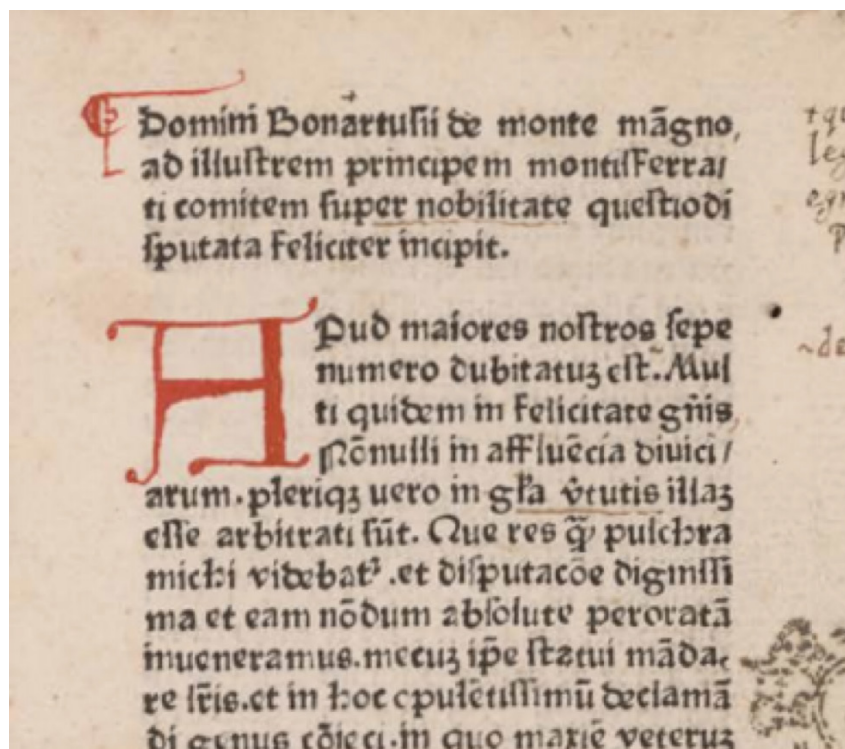 Domini Bonartusii de monte māgno,
ad illustrem principem montisferra/
ti comitem super nobilitate questiodi
sputata feliciter incipit.
APud maiores nostros sepe
numero dubitatuꝫ est. Mul
ti quidem in felicitate gñis
Nōnulli in affluēcia diuici/
arum. pleriqꝫ uero in gĺa v̓tutis illaꝫ
esse arbitrati sūt. Que res ꝙ̄ pulchra
michi videbat᷑ .et disputacōe dignissi
ma et eam nōdum absolute peroratā
inueneramus. mecuꝫ ip̄e statui māda,
re lr̄is. et in hoc opulētissimū declamā
di genus cōieci. in quo maxīe veteruꝫ